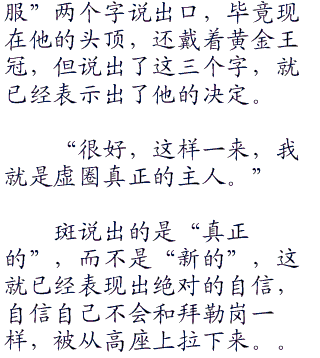 服”两个字说出口，毕竟现
在他的头顶，还戴着黄金王
冠，但说出了这三个字，就
已经表示出了他的决定。
“很好，这样一来，我
就是虚圈真正的主人。”
斑说出的是“真正
的”，而不是“新的”，这
就已经表现出绝对的自信，
自信自己不会和拜勒岗一
样，被从高座上拉下来。。